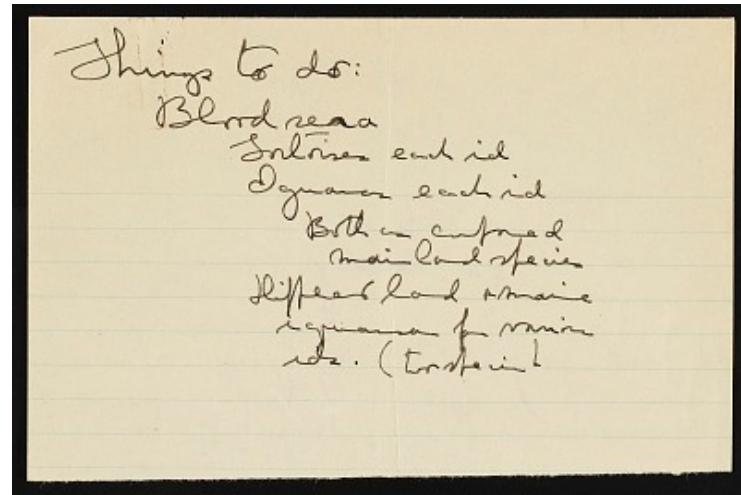 Things to do:
Blood sera
Tortoises each isd
Iguanas each isd
Both as compared
mainland species
Different land & marine
iguanas for various
isds. (two species)